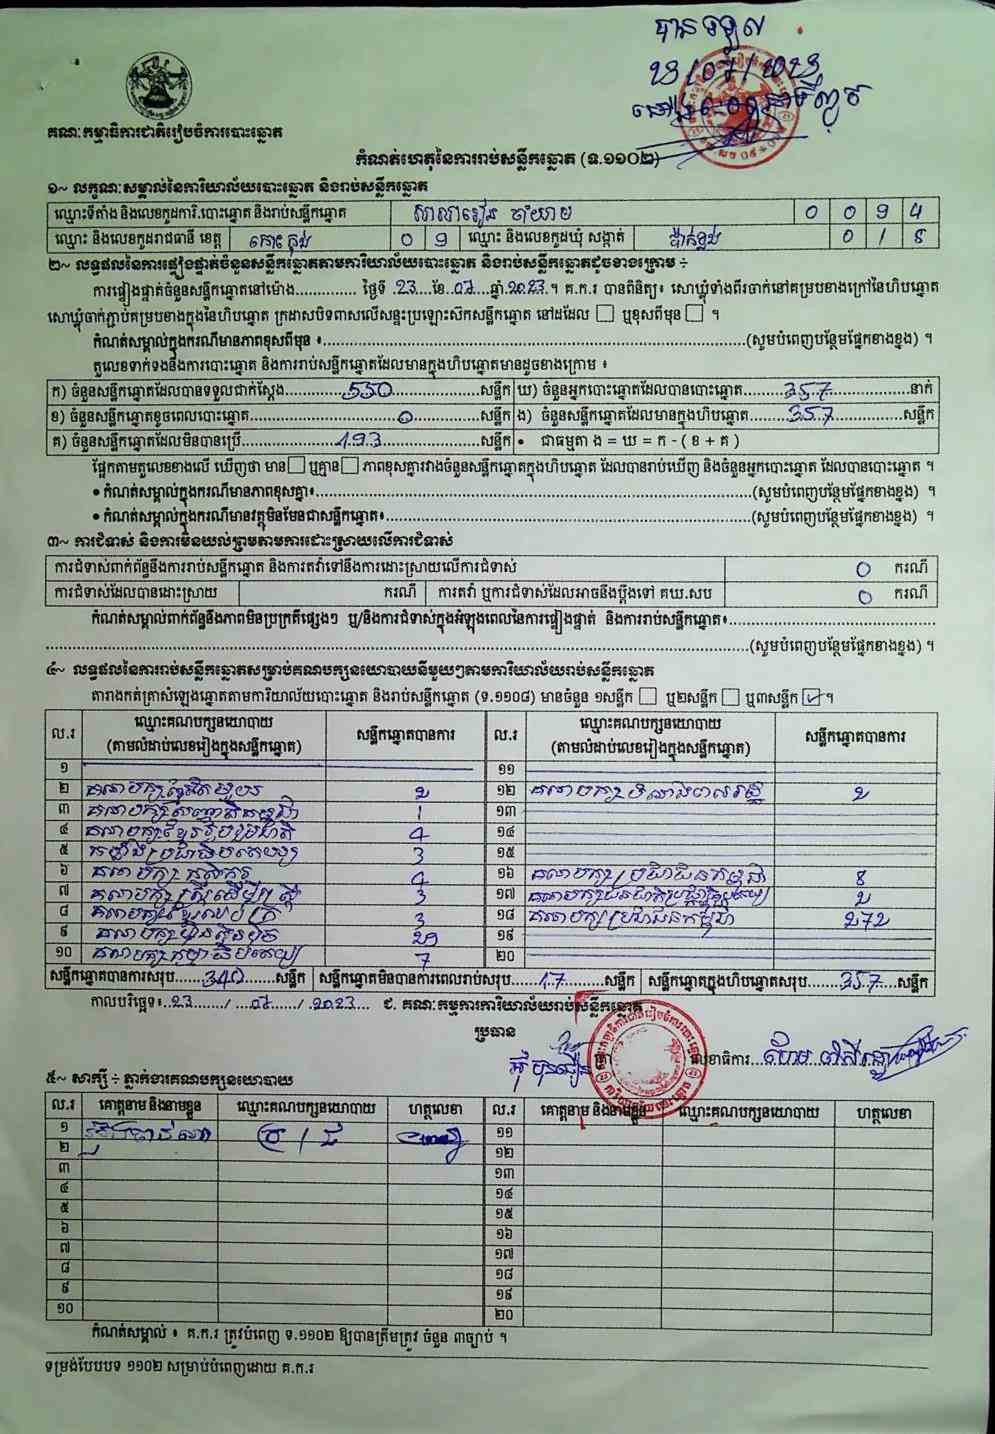 បានទទួល
គណៈកម្មាធិការជាតិរៀបចំការបោះឆ្នោត
កំណត់ហេតុនៃការរាប់សន្លឹកឆ្នោត (ទ.១១០២)
១~ លក្ខណៈសម្គាល់នៃការិយាល័យបោះឆ្នោត និងរាប់សន្លឹកឆ្នោត
ឈ្មោះទីតាំង និងលេខកូដការិ.បោះឆ្នោត និងរាប់សន្លឹកឆ្នោត សាលារៀន ចាំយាម 0 0 9 4
ឈ្មោះ និងលេខកូដរាជធានី ខេត្ត កោះកុង 0 9 ឈ្មោះ និងលេខកូដឃុំ សង្កាត់ ប៉ាក់ខ្លង 0 1 8
២~ លទ្ធផលនៃការផ្ទៀងផ្ទាត់ចំនួនសន្លឹកឆ្នោតតាមការិយាល័យបោះឆ្នោត និងរាប់សន្លឹកឆ្នោតដូចខាងក្រោម ÷
ការផ្ទៀងផ្ទាត់ចំនួនសន្លឹកឆ្នោតនៅម៉ោង.............. ថ្ងៃទី 23 ខែ 07 ឆ្នាំ 2023 ។ គ.ក.រ បានពិនិត្យ៖ សោឃ្លុំទាំងពីរចាក់នៅគម្របខាងក្រៅនៃហិបឆ្នោត
សោឃ្លុំចាក់ភ្ជាប់គម្របខាងក្នុងនៃហិបឆ្នោត ក្រដាសបិទពាសលើសន្ទះប្រឡោះសឹកសន្លឹកឆ្នោត នៅដដែល ☐ ឬខុសពីមុន ☐ ។
កំណត់សម្គាល់ក្នុងករណីមានភាពខុសពីមុន ៖..............(សូមបំពេញបន្ថែមផ្នែកខាងខ្នង) ។
តួលេខទាក់ទងនឹងការបោះឆ្នោត និងការរាប់សន្លឹកឆ្នោតដែលមានក្នុងហិបឆ្នោតមានដូចខាងក្រោម ៖
ក) ចំនួនសន្លឹកឆ្នោតដែលបានទទួលជាក់ស្តែង 550 សន្លឹក ឃ) ចំនួនអ្នកបោះឆ្នោតដែលបានបោះឆ្នោត 357 នាក់
ខ) ចំនួនសន្លឹកឆ្នោតខូចពេលបោះឆ្នោត 0 សន្លឹក ង) ចំនួនសន្លឹកឆ្នោតដែលមានក្នុងហិបឆ្នោត 357 សន្លឹក
គ) ចំនួនសន្លឹកឆ្នោតដែលមិនបានប្រើ 193 សន្លឹក • ជាធម្មតា ង = ឃ = ក - ( ខ + គ )
ផ្អែកតាមតួលេខខាងលើ ឃើញថា មាន ☐ ឬគ្មាន ☐ ភាពខុសគ្នារវាងចំនួនសន្លឹកឆ្នោតក្នុងហិបឆ្នោត ដែលបានរាប់ឃើញ និងចំនួនអ្នកបោះឆ្នោត ដែលបានបោះឆ្នោត ។
• កំណត់សម្គាល់ក្នុងករណីមានភាពខុសគ្នា៖..............(សូមបំពេញបន្ថែមផ្នែកខាងខ្នង) ។
• កំណត់សម្គាល់ក្នុងករណីមានវត្ថុមិនមែនជាសន្លឹកឆ្នោត៖..............(សូមបំពេញបន្ថែមផ្នែកខាងខ្នង) ។
៣~ ការជំទាស់ និងការមិនយល់ព្រមតាមការដោះស្រាយលើការជំទាស់
ការជំទាស់ពាក់ព័ន្ធនឹងការរាប់សន្លឹកឆ្នោត និងការតវ៉ាទៅនឹងការដោះស្រាយលើការជំទាស់ 0 ករណី
ការជំទាស់ដែលបានដោះស្រាយ ករណី ការតវ៉ា ឬការជំទាស់ដែលអាចនឹងប្តឹងទៅ គឃ.សប 0 ករណី
កំណត់សម្គាល់ពាក់ព័ន្ធនឹងភាពមិនប្រក្រតីផ្សេងៗ ឬ/និងការជំទាស់ក្នុងអំឡុងពេលនៃការផ្ទៀងផ្ទាត់ និងការរាប់សន្លឹកឆ្នោត៖..............
..............(សូមបំពេញបន្ថែមផ្នែកខាងខ្នង) ។
៤~ លទ្ធផលនៃការរាប់សន្លឹកឆ្នោតសម្រាប់គណបក្សនយោបាយនីមួយៗតាមការិយាល័យរាប់សន្លឹកឆ្នោត
តារាងកត់ត្រាសំឡេងឆ្នោតតាមការិយាល័យបោះឆ្នោត និងរាប់សន្លឹកឆ្នោត (ទ.១១០៨) មានចំនួន ១សន្លឹក ☐ ឬ២សន្លឹក ☐ ឬ៣សន្លឹក ☑ ។
ល.រ ឈ្មោះគណបក្សនយោបាយ (តាមលំដាប់លេខរៀងក្នុងសន្លឹកឆ្នោត) សន្លឹកឆ្នោតបានការ ល.រ ឈ្មោះគណបក្សនយោបាយ (តាមលំដាប់លេខរៀងក្នុងសន្លឹកឆ្នោត) សន្លឹកឆ្នោតបានការ
១ ១១
២ 2 ១២ 2
៣ 1 ១៣
៤ គណបក្សខ្មែររួបរួមជាតិ 4 ១៤
៥ 3 ១៥
៦ គណបក្សកសិករ 4 ១៦ 8
៧ គណបក្សស្ត្រីដើម្បីស្ត្រី 3 ១៧ 2
៨ 3 ១៨ គណបក្សប្រជាជនកម្ពុជា 272
៩ គណបក្សហ៊្វុនស៊ិនប៉ិច 29 ១៩
១០ 7 ២០
សន្លឹកឆ្នោតបានការសរុប 340 សន្លឹក សន្លឹកឆ្នោតមិនបានការពេលរាប់សរុប 17 សន្លឹក សន្លឹកឆ្នោតក្នុងហិបឆ្នោតសរុប 357 សន្លឹក
កាលបរិច្ឆេទ៖ 23 / 07 / 2023 ជ. គណៈកម្មការការិយាល័យរាប់សន្លឹកឆ្នោត
ប្រធាន
លេខាធិការ
៥~ សាក្សី ÷ ភ្នាក់ងារគណបក្សនយោបាយ
ល.រ គោត្តនាម និងនាមខ្លួន ឈ្មោះគណបក្សនយោបាយ ហត្ថលេខា ល.រ គោត្តនាម និងនាមខ្លួន ឈ្មោះគណបក្សនយោបាយ ហត្ថលេខា
១ ១១
២ ១២
៣ ១៣
៤ ១៤
៥ ១៥
៦ ១៦
៧ ១៧
៨ ១៨
៩ ១៩
១០ ២០
កំណត់សម្គាល់ ៖ គ.ក.រ ត្រូវបំពេញ ទ.១១០២ ឱ្យបានត្រឹមត្រូវ ចំនួន ៣ច្បាប់ ។
ទម្រង់បែបបទ ១១០២ សម្រាប់បំពេញដោយ គ.ក.រ